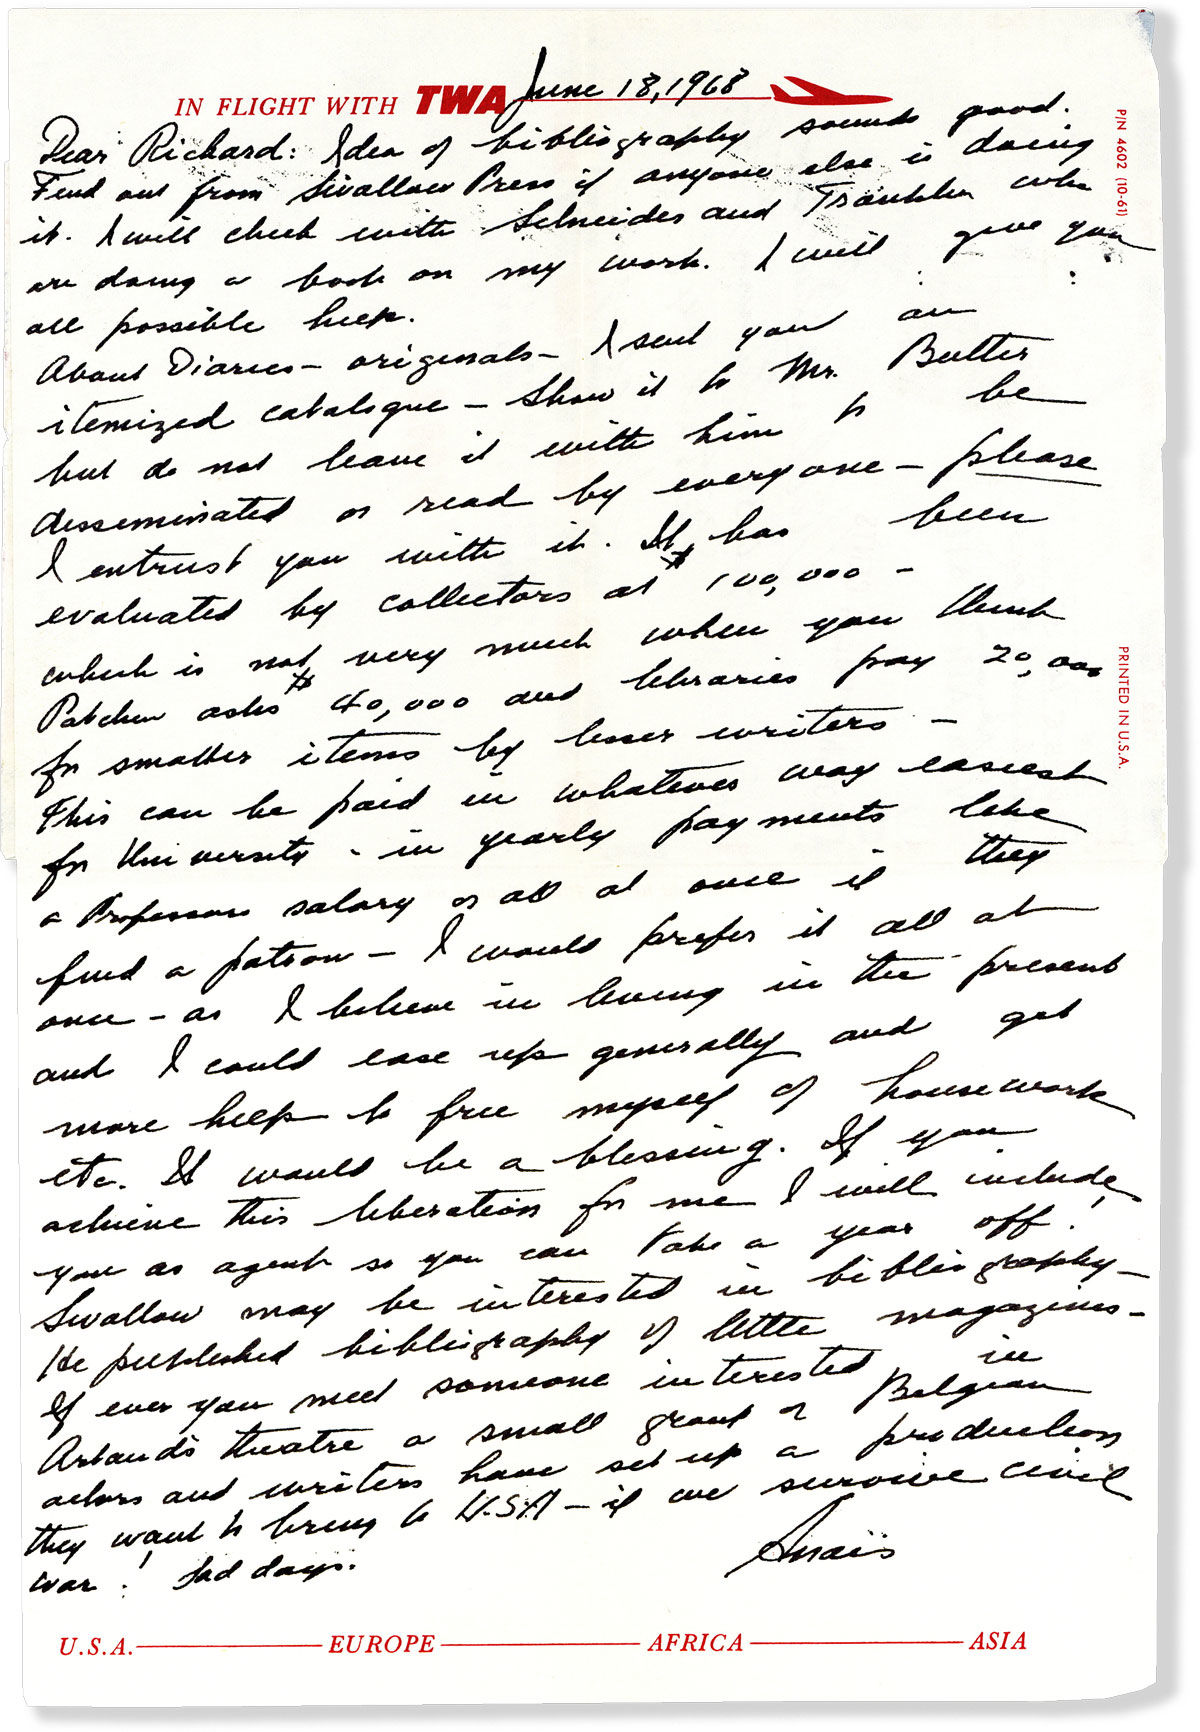 IN FLIGHT WITH TWA June 18, 1968
Dear Richard: Idea of bibliography sounds good.
Find out from Swallow Press if anyone else is doing
it. I will check with Schneider and Franklin who
are doing a book on my work. I will give you
all possible help.
About Diaries – originals – I sent you an
itemized catalogue – Show it to Mr. Butler
but do not leave it with him to be
disseminated or read by everyone – please
I entrust you with it. It has been
evaluated by collectors at $100,000 –
which is not very much when you think
Patchen asks $40,000 and libraries pay 20,000
for smaller items by lesser writers –
This can be paid in whatever way easiest
for University - in yearly payments like
a Professors salary or all at once if they
find a patron – I would prefer it all at
once – as I believe in living in the present
and I could ease up generally and get
more help to free myself of housework
etc. It would be a blessing. If you
achieve this liberation for me I will include
you as agent so you can take a year off!
Swallow may be interested in bibliography –
He published bibliography of little magazines –
If ever you meet someone interested in
Artaud's theatre a small group of Belgian
actors and writers have set up a production
they want to bring to U.S.A – if we survive civil
war! Sad days.
Anaïs
U.S.A. EUROPE AFRICA ASIA
P/N 4602 (10-61)
PRINTED IN U.S.A.